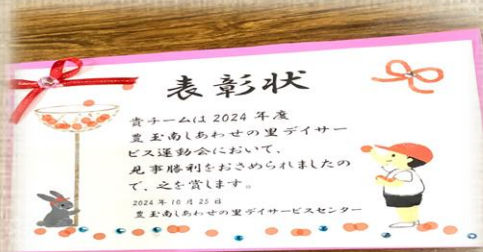 表彰状
貴チームは2024年度
豊玉南しあわせの里デイサー
ビス運動会において、
見事勝利をおさめられましたの
で、之を賞します。
2024年10月25日
豊玉南しあわせの里デイサービスセンター